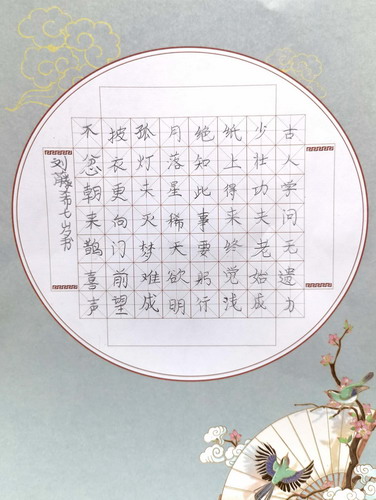 古人学问无遗力
少壮功夫老始成
纸上得来终觉浅
绝知此事要躬行
月落星稀天欲明
孤灯未灭梦难成
披衣更向门前望
不忿朝来鹊喜声
刘希七岁书